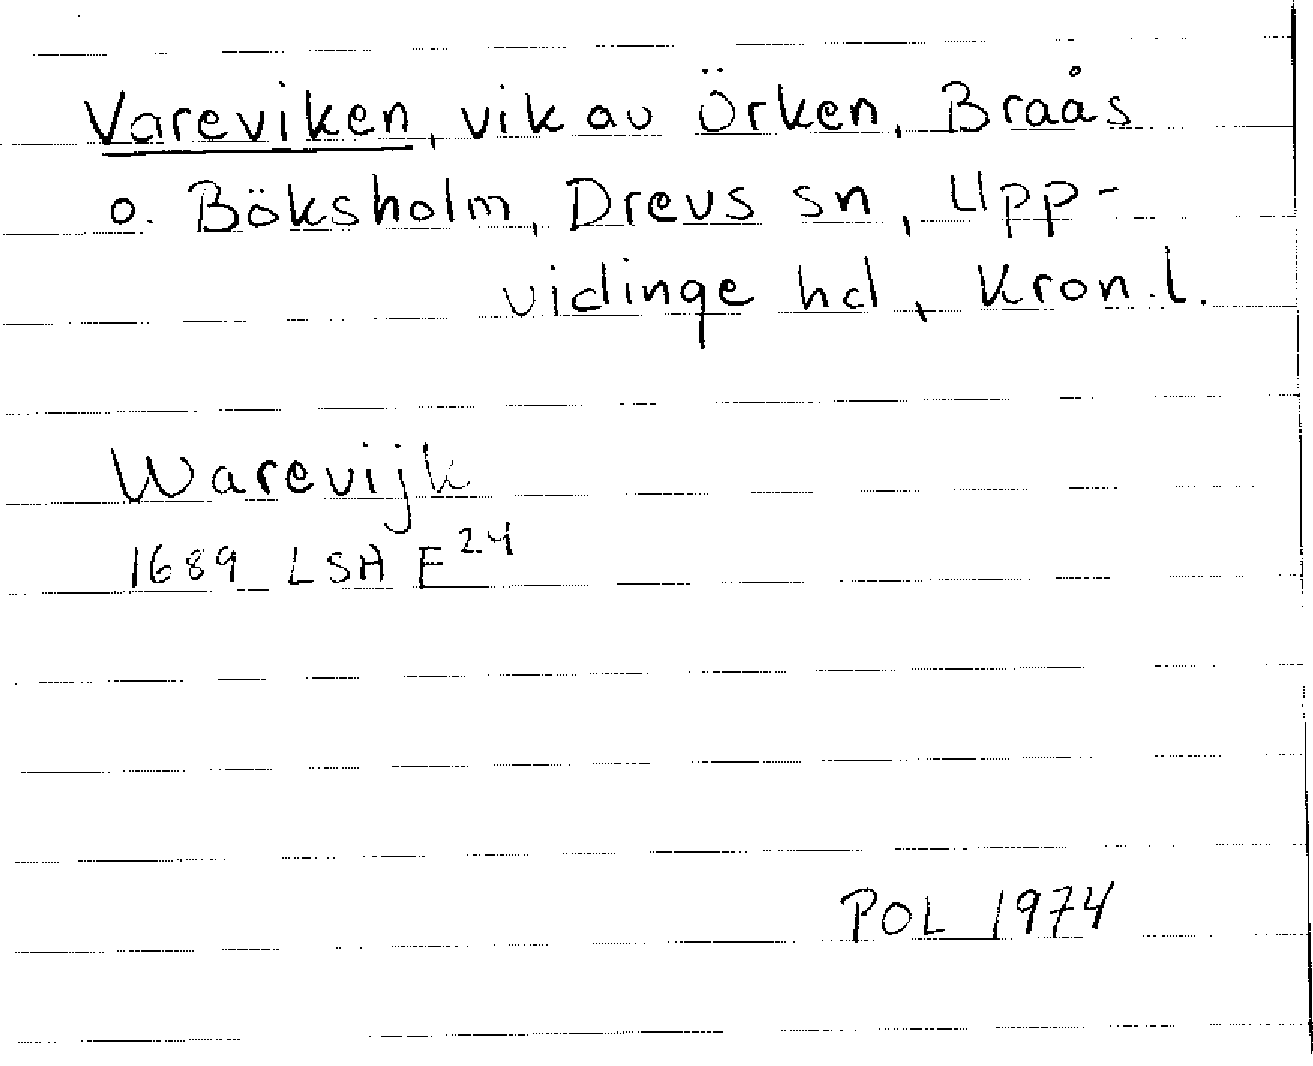 Vareviken, vik av Örken, Braås
o. Böksholm, Drevs sn, Upp-
vidinge hd, Kron.l.
Warevijk
1689 LSA E²⁴
POL 1974